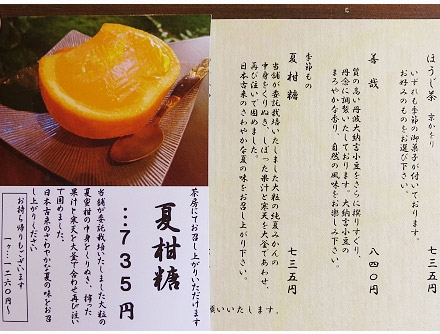 ほうじ茶 京かをり
いずれも季節の御菓子が付いております。
お好みのものをお選び下さい。 七三五円
善哉
質の高い丹波大納言小豆をさらに撰りすぐり、
丹念に調製いたしております。大納言小豆の
まろやかな香り、自然の風味をお楽しみ下さい。 八四〇円
季節もの
夏柑糖
当舗が委託栽培いたしました大粒の純夏みかんの
中身をくりぬき、しぼった果汁と寒天を大釜であわせ、
再び注いで固めました。
日本古来のさわやかな夏の味をお召し上がり下さい。 七三五円
願いいたします。
茶房にてお召し上がりいただけます
夏柑糖
…七三五円
当舗が委託栽培いたしました大粒の
夏蜜柑の中身をくりぬき、搾った
果汁と寒天を大釜で合わせ再び注い
で固めました。
日本古来のさわやかな夏の味をお召
し上がりください
お持ち帰りもございます
一二六〇円～